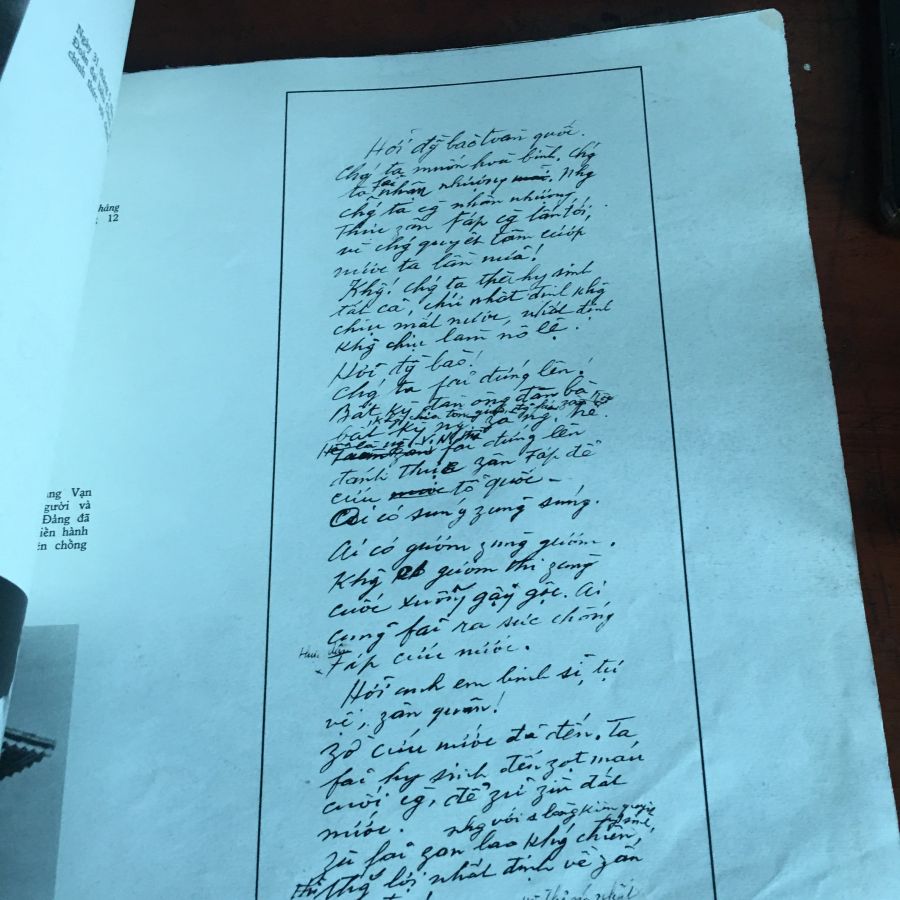 Ngày
tháng
12
ng Vạn
gười và
Đảng đã
iền hành
n chồng
Hỡi đồ̀ng bào toàn quốc.
Chúng ta muốn hoà bình, chúng
ta fải nhân nhượng. Nhưng
chúng ta càng nhân nhượng
thực zân Fáp càng lấn tới,
vì chúng quyết tâm cướp
nước ta lần nữa!
Không! Chúng ta thà hy sinh
tất cả, chứ nhất định không
chịu mất nước, nhất định
không chịu làm nô lệ.
Hỡi đồng bào!
Chúng ta fải đứng lên!
Bất kỳ đàn ông đàn bà
bất kỳ người zà người trẻ.
fải đứng lên
đánh thực zân Fáp để
cứu tổ quốc -
Ai có súng zùng súng.
Ai có gươm zùng gươm.
Không có gươm thì zùng
cuốc xuổng gậy gộc. Ai
cũng fải ra sức chống
thực dân
Fáp cứu nước.
Hỡi anh em binh sĩ, tự
vệ, zân quân!
Zờ cứu nước đã đến. Ta
fải hy sinh đến zọt máu
cuối cùng, để zữ zìn đất
nước.
Zù fải zan lao kháng chiến,
nhưng với 1 lòng kiên quyết
hy sinh,
Thì thắng lợi nhất định về zân